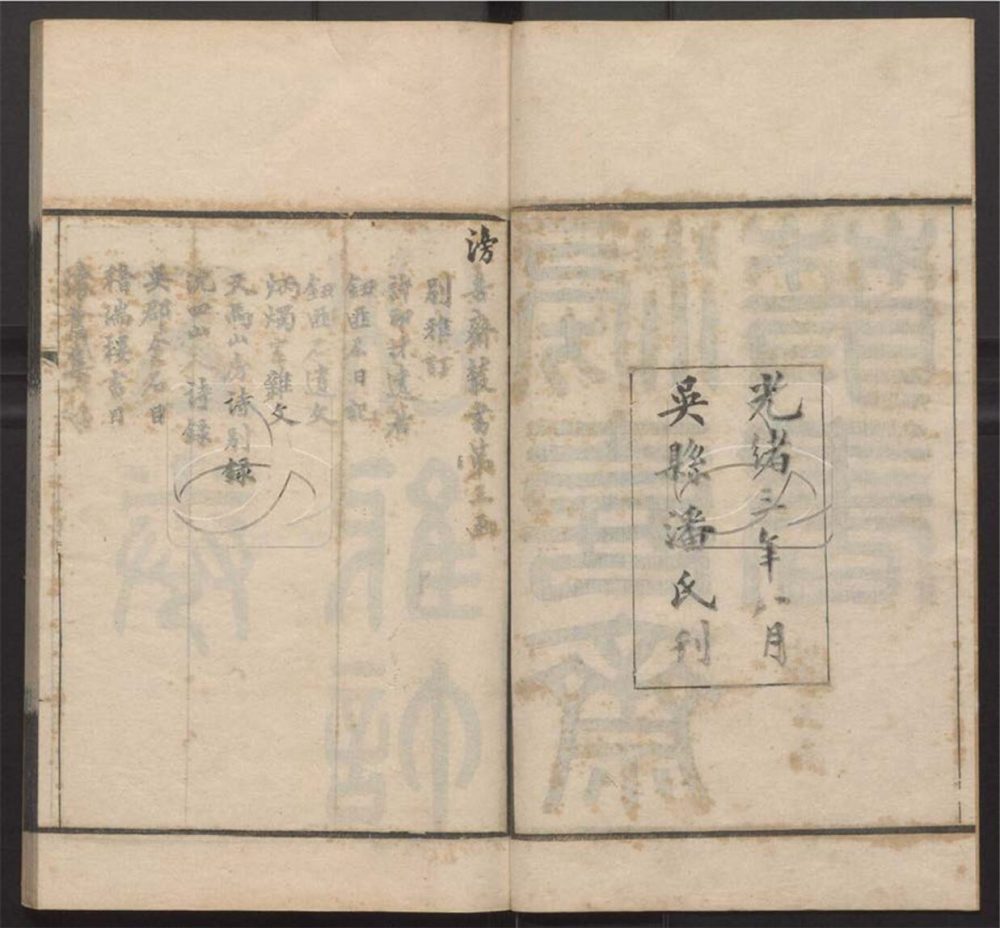 光緒三年八月
吳縣潘氏刊
滂喜齋叢書第三函
別雅訂
許印林遺著
鈕匪石日記
鈕匪石遺文
炳燭室雜文
天馬山房詩別錄
沈四山人詩錄
吳郡金石目
稽瑞樓書目